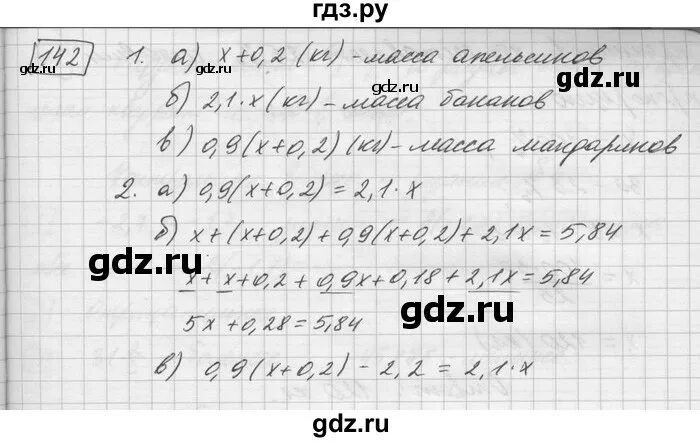 гдз.ру
142 1. а) x+0,2 (кг) - масса апельсинов
б) 2,1·x (кг) - масса бананов
в) 0,9(x+0,2) (кг) - масса мандаринов
2. а) 0,9(x+0,2) = 2,1·x
б) x+(x+0,2)+0,9(x+0,2)+2,1x=5,84
x+x+0,2+0,9x+0,18+2,1x=5,84
5x+0,28=5,84
в) 0,9(x+0,2) - 2,2 = 2,1·x
gdz.ru
gdz.ru
gdz.ru
gdz.ru
gdz.ru
gdz.ru
gdz.ru
gdz.ru
gdz.ru